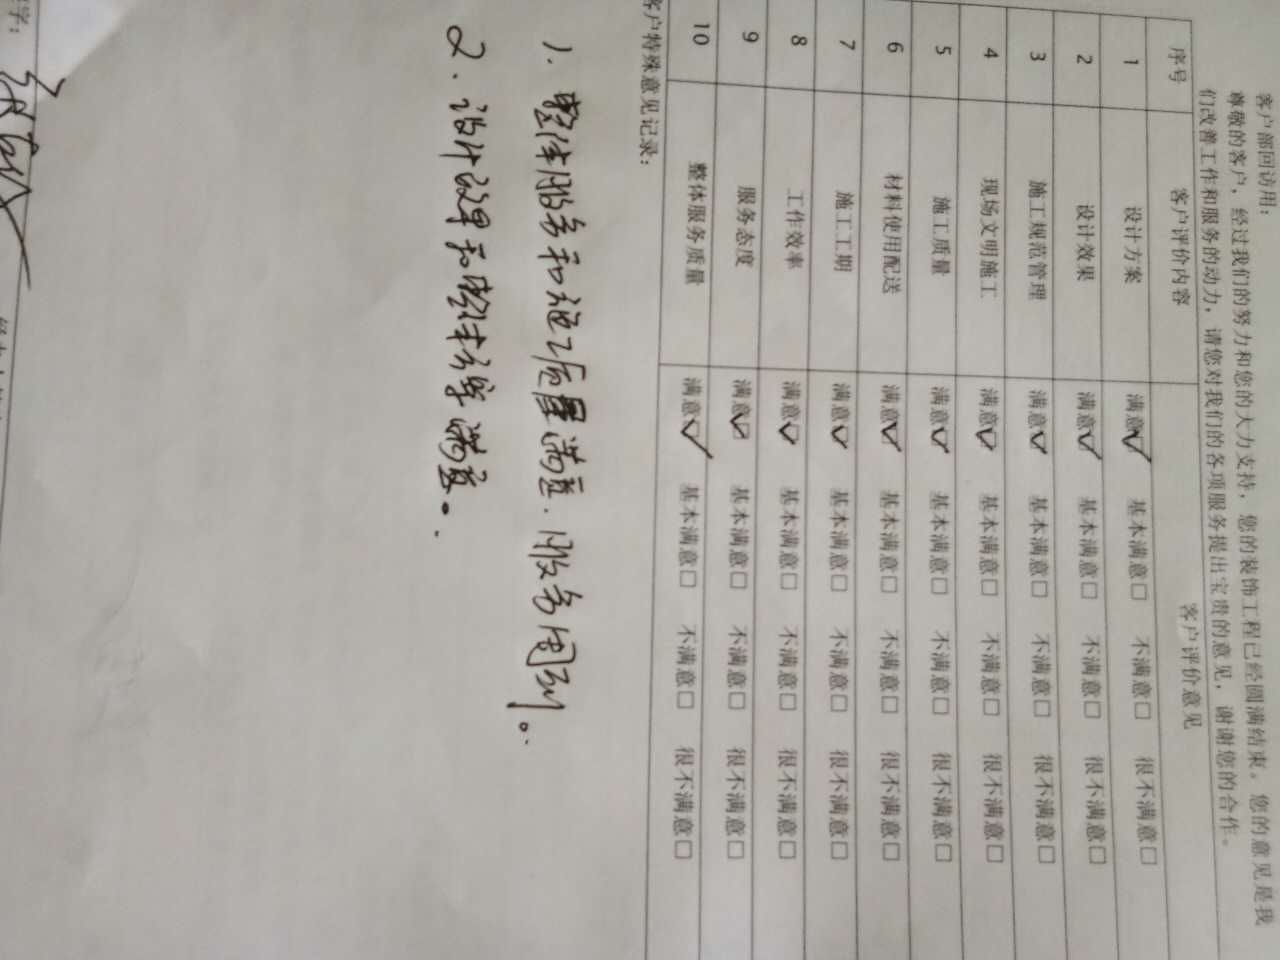 客户部回访用：
尊敬的客户，经过我们的努力和您的大力支持，您的装饰工程已经圆满结束。您的意见是我
们改善工作和服务的动力，请您对我们的各项服务提出宝贵的意见，谢谢您的合作。
序号 客户评价内容 客户评价意见
1 设计方案 满意☑ 基本满意□ 不满意□ 很不满意□
2 设计效果 满意☑ 基本满意□ 不满意□ 很不满意□
3 施工规范管理 满意☑ 基本满意□ 不满意□ 很不满意□
4 现场文明施工 满意☑ 基本满意□ 不满意□ 很不满意□
5 施工质量 满意☑ 基本满意□ 不满意□ 很不满意□
6 材料使用配送 满意☑ 基本满意□ 不满意□ 很不满意□
7 施工工期 满意☑ 基本满意□ 不满意□ 很不满意□
8 工作效率 满意☑ 基本满意□ 不满意□ 很不满意□
9 服务态度 满意☑ 基本满意□ 不满意□ 很不满意□
10 整体服务质量 满意☑ 基本满意□ 不满意□ 很不满意□
客户特殊意见记录：
1. 整体服务和施工质量满意．服务周到。
2. 设计效果和整体效果满意。